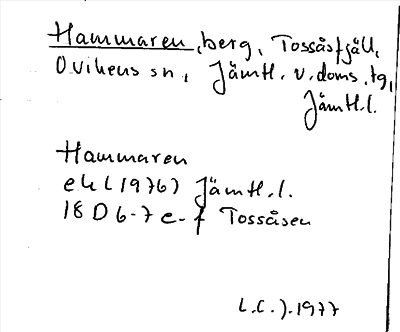 Hammaren, berg, Tossåsfjäll,
Ovikens sn, Jämtl. v. doms.tg,
Jämtl.l.
Hammaren
ek L(1976) Jämtl.l.
18 D 6-7 e-f Tossåsen
L.C.J.1977